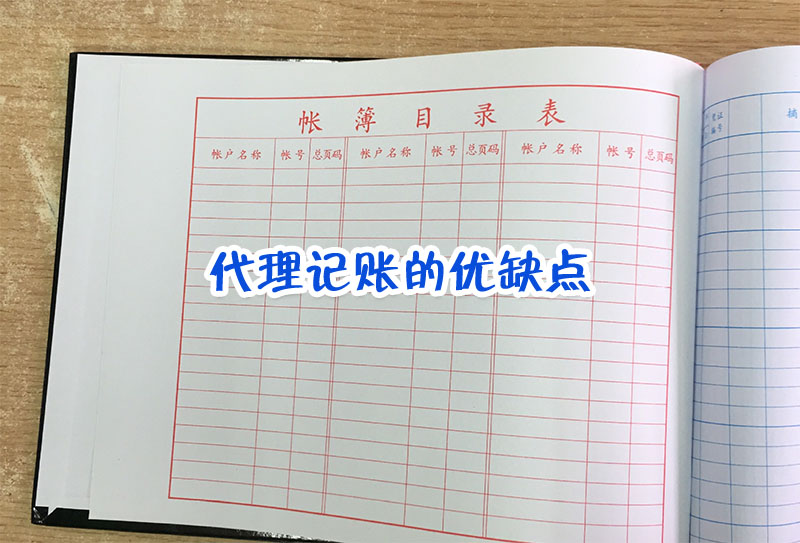 帐簿目录表
帐户名称 帐号 总页码 帐户名称 帐号 总页码 帐户名称 帐号 总页码
代理记账的优缺点
摘